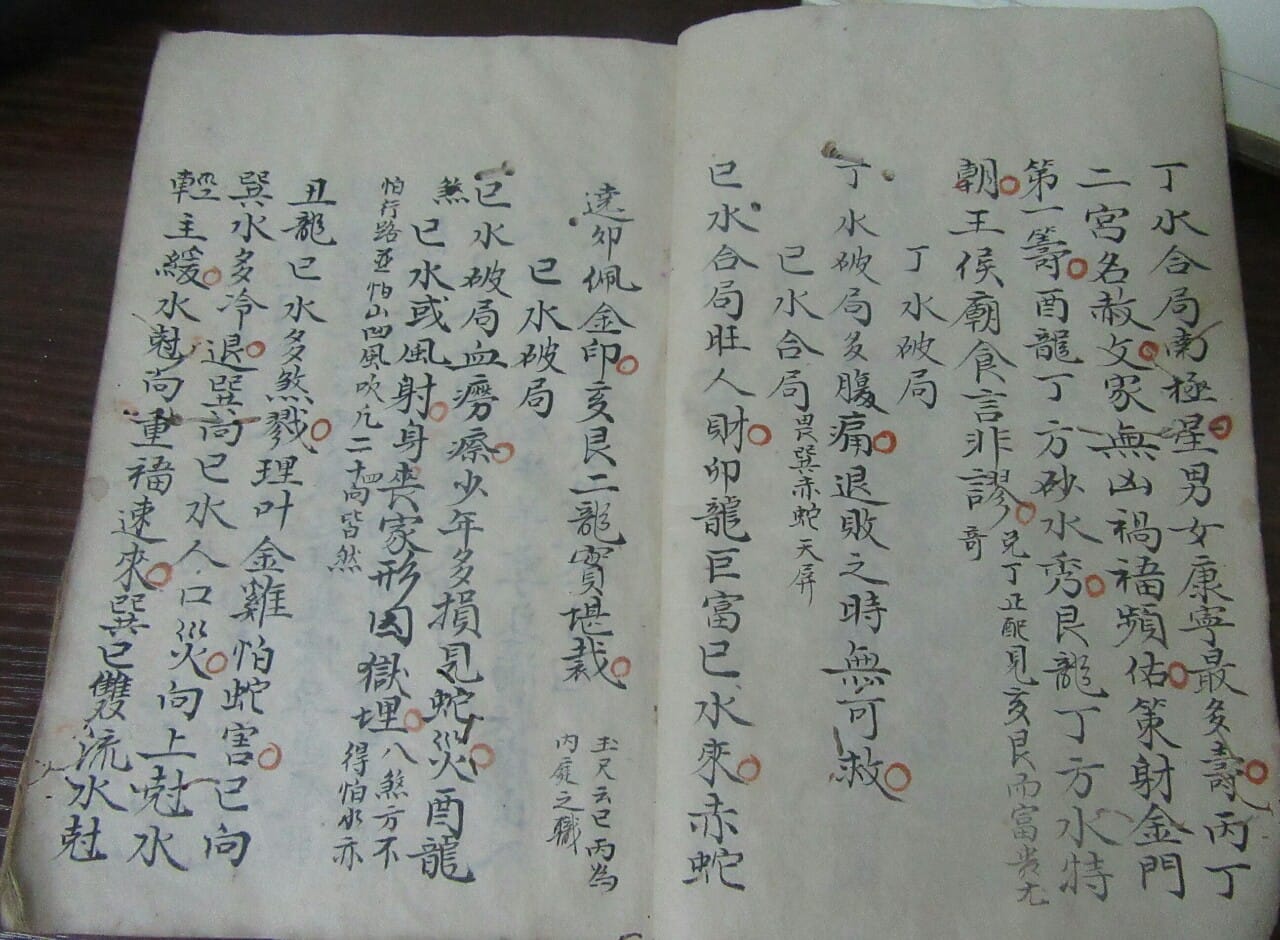 丁水合局南極星男女康寧最多壽丙丁
二宮名赦文家無凶禍福頻佑策射金門
第一籌酉龍丁方砂水秀艮龍丁方水特
朝王侯廟食言非謬奇
兄丁正配見亥艮而富貴尤
丁水破局
丁水破局多腹痛退敗之時無可救
巳水合局畏巽赤蛇天屏
巳水合局旺人財卯龍巨富巳水來赤蛇
遶卯佩金印亥艮二龍實堪裁
玉尺云巳丙為
內庭之職
巳水破局
巳水破局血癆瘵少年多損見蛇災酉龍
煞巳水或風射身喪家形囚獄埋八煞方不
得怕水亦
怕行路並怕山凹風吹凢二十四向皆然
丑龍巳水多煞戮理叶金雞怕蛇害巳向
巽水多冷退巽高巳水人口災向上尅水
輕主緩水尅尚重福速來巽巳雙流水尅